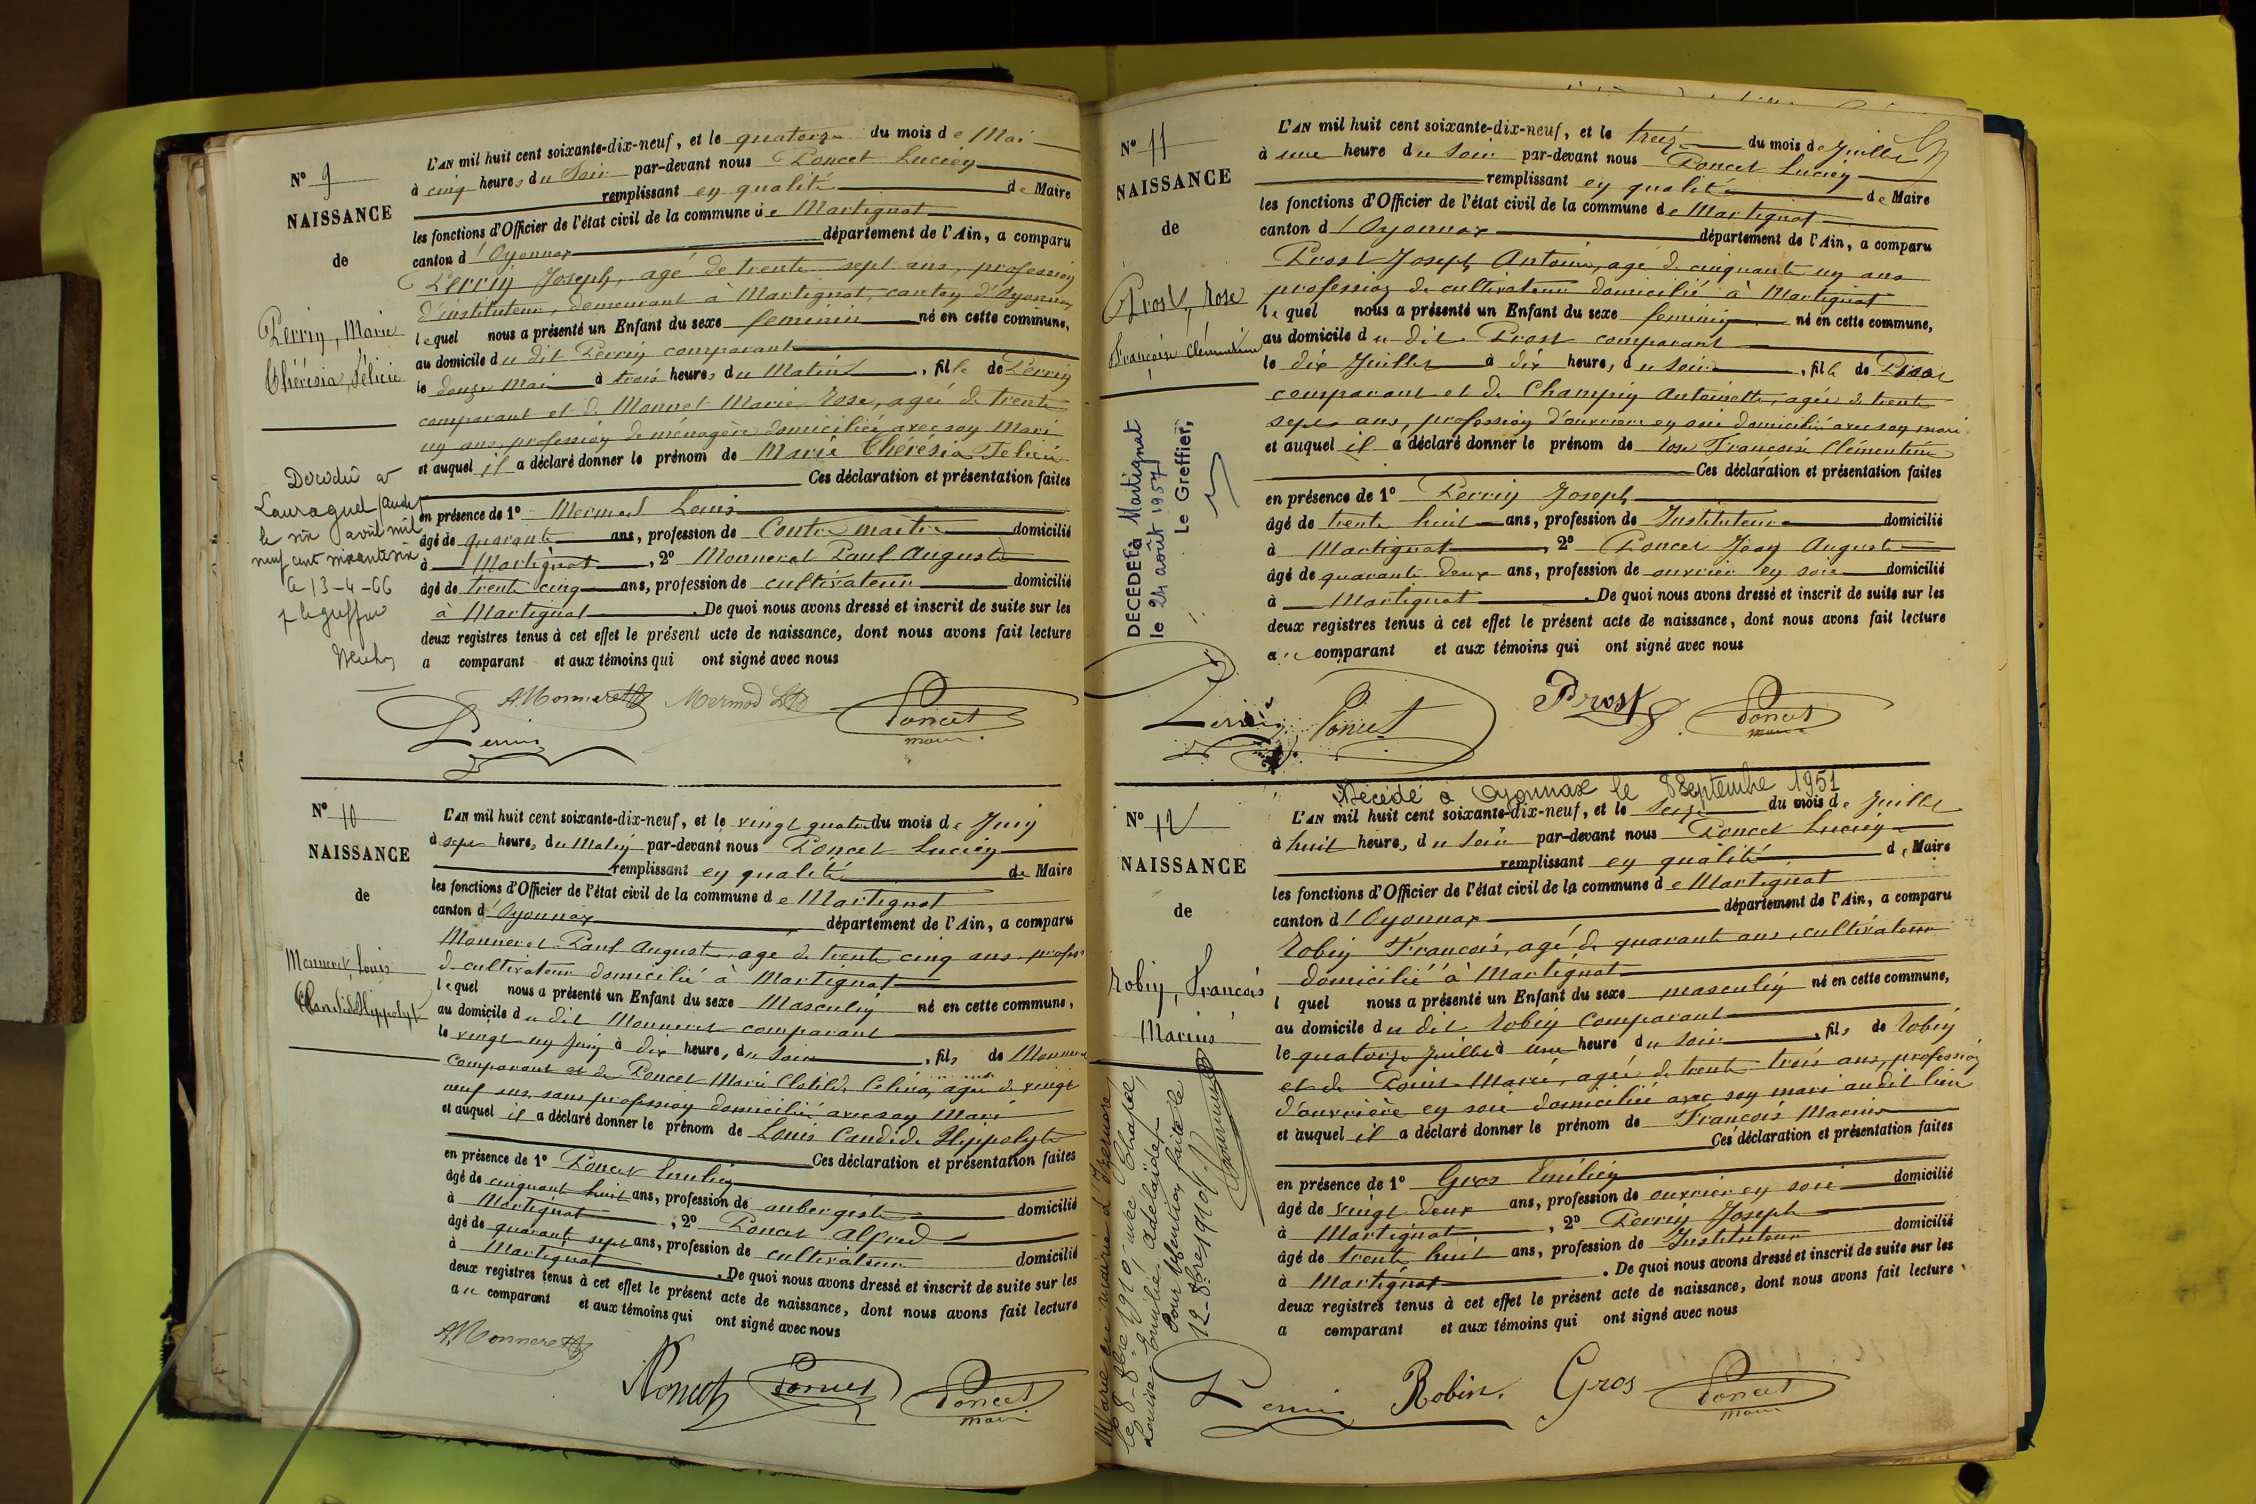 N° 9
NAISSANCE
de
Perrin, Marie
Thérésia, Félicie
Décédée à
Lauraguel (Aude)
le six avril mil
neuf cent soixante six
le 13-4-66
L'AN mil huit cent soixante-dix-neuf, et le quatorze du mois de Mai
à cinq heures du Soir par-devant nous Poncet Lucien
remplissant en qualité de Maire
les fonctions d'Officier de l'état civil de la commune de Martignat
canton d'Oyonnax département de l'Ain, a comparu
Perrin Joseph, agé de trente sept ans, profession
d'instituteur, demeurant à Martignat, canton d'Oyonnax
lequel nous a présenté un Enfant du sexe feminin né en cette commune,
au domicile du dit Perrin comparant
le douze Mai à trois heures du Matin, fille de Perrin
comparant et de Monnet Marie Rose, agée de trente
un ans, profession de ménagère domiciliée avec son Mari
et auquel il a déclaré donner le prénom de Marie Thérésia Felicie
Ces déclaration et présentation faites
en présence de 1° Mermod Louis
âgé de quarante ans, profession de Contre maître domicilié
à Martignat, 2° Monneret Paul Auguste
âgé de trente cinq ans, profession de cultivateur domicilié
à Martignat. De quoi nous avons dressé et inscrit de suite sur les
deux registres tenus à cet effet le présent acte de naissance, dont nous avons fait lecture
a comparant et aux témoins qui ont signé avec nous
A Monneret Mermod Ls Poncet
maire
Perrin
N° 10
NAISSANCE
de
Monneret, Louis
Candide Hippolyte
L'AN mil huit cent soixante-dix-neuf, et le vingt quatre du mois de Juin
à sept heures du Matin par-devant nous Poncet Lucien
remplissant en qualité de Maire
les fonctions d'Officier de l'état civil de la commune de Martignat
canton d'Oyonnax département de l'Ain, a comparu
Monneret Paul Auguste agé de trente cinq ans profess
de cultivateur domicilié à Martignat
lequel nous a présenté un Enfant du sexe Masculin né en cette commune,
au domicile du dit Monneret comparant
le vingt un Juin à dix heure, du Soir, fils de Monneret
comparant et de Poncet Marie Clotilde Celina, agée de vingt
neuf ans, sans profession domiciliée avec son Mari
et auquel il a déclaré donner le prénom de Louis Candide Hippolyte
Ces déclaration et présentation faites
en présence de 1° Poncet Emilien
âgé de cinquante huit ans, profession de aubergiste domicilié
à Martignat, 2° Poncet Alfred
âgé de quarante sept ans, profession de cultivateur domicilié
à Martignat. De quoi nous avons dressé et inscrit de suite sur les
deux registres tenus à cet effet le présent acte de naissance, dont nous avons fait lecture
au comparant et aux témoins qui ont signé avec nous
A. Monneret
Poncet Poncet Poncet
maire
N° 11
NAISSANCE
de
Prost, Rose
Françoise Clémentine
DÉCÉDÉE à Martignat
le 24 août 1957
Le Greffier,
L'AN mil huit cent soixante-dix-neuf, et le treize du mois de Juillet
à une heure du Soir par-devant nous Poncet Lucien
remplissant en qualité de Maire
les fonctions d'Officier de l'état civil de la commune de Martignat
canton d'Oyonnax département de l'Ain, a comparu
Prost Joseph Antoine, agé de cinquante un ans
profession de cultivateur domicilié à Martignat
lequel nous a présenté un Enfant du sexe feminin né en cette commune,
au domicile du dit Prost comparant
le dix Juillet à dix heure, du Soir, fille de Prost
comparant et de Champin Antoinette, agée de trente
sept ans, profession d'ouvrière en soie domiciliée avec son mari
et auquel il a déclaré donner le prénom de Rose Françoise Clémentine
Ces déclaration et présentation faites
en présence de 1° Perrin Joseph
âgé de trente huit ans, profession de Instituteur domicilié
à Martignat, 2° Poncet Jean Auguste
âgé de quarante deux ans, profession de ouvrier en soie domicilié
à Martignat. De quoi nous avons dressé et inscrit de suite sur les
deux registres tenus à cet effet le présent acte de naissance, dont nous avons fait lecture
au comparant et aux témoins qui ont signé avec nous
Perrin Poncet Prost Poncet
maire
Décédé à Oyonnax le 8 Septembre 1951
N° 12
NAISSANCE
de
Robin, François
Marius
Marié en mairie d'Izernore,
le 8-8bre 1910-avec Chapée,
Louise-Emilie, Adélaïde,
Pour Mention faite le
12-8bre 1910
L'AN mil huit cent soixante-dix-neuf, et le seize du mois de Juillet
à huit heure, du Soir par-devant nous Poncet Lucien
remplissant en qualité de Maire
les fonctions d'Officier de l'état civil de la commune de Martignat
canton d'Oyonnax département de l'Ain, a comparu
Robin François, agé de quarante ans, cultivateur
domicilié à Martignat
l quel nous a présenté un Enfant du sexe masculin né en cette commune,
au domicile du dit Robin comparant
le quatorze Juillet à une heure du Soir, fils de Robin
et de Pomis Marie, agée de trente trois ans, profession
d'ouvrière en soie domiciliée avec son mari audit lieu
et auquel il a déclaré donner le prénom de François Marius
Ces déclaration et présentation faites
en présence de 1° Gros Emilien
âgé de vingt deux ans, profession de ouvrier en soie domicilié
à Martignat, 2° Perrin Joseph
âgé de trente huit ans, profession de Instituteur domicilié
à Martignat. De quoi nous avons dressé et inscrit de suite sur les
deux registres tenus à cet effet le présent acte de naissance, dont nous avons fait lecture
a comparant et aux témoins qui ont signé avec nous
Perrin Robin. Gros Poncet
maire